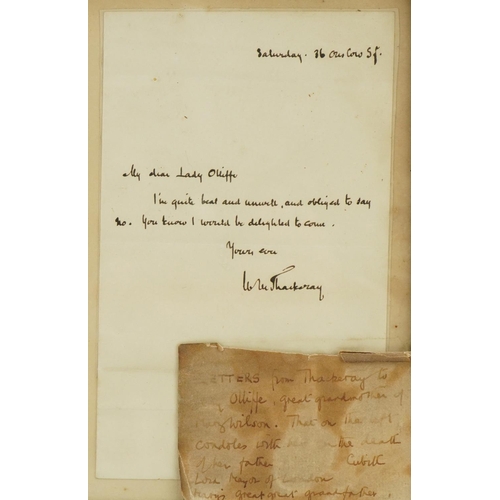 Saturday. 36 Onslow Sq.
My dear Lady Olliffe
I'm quite beat and unwell, and obliged to say
no. You know I would be delighted to come.
Yours ever
W M Thackeray
LETTERS from Thackeray to
Olliffe, great grandmother of
Wilson. That on the left
Condoles with her on the death
of her father Cubitt
Lord Mayor of London
great great grandfather.